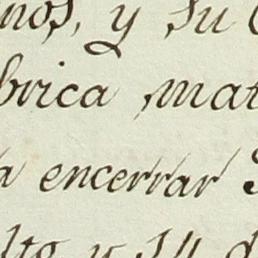 nos, y su
brica mat
a encerrar
lto y 14 d